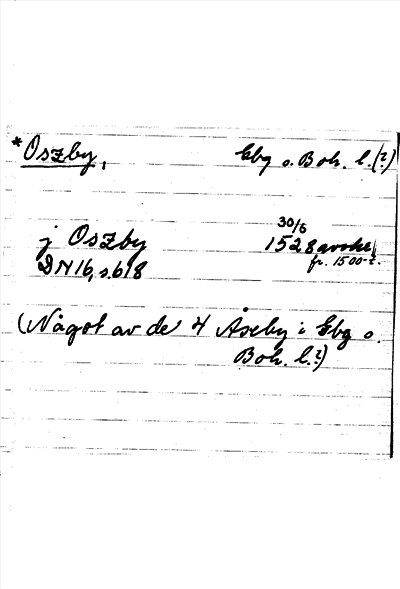 *Oszby, Gbg o. Boh. l. (?)
30/6
j Oszby 1528 avskr.
DN 16, s. 618 fr. 1500-t.
(Något av de 4 Åseby i Gbg o.
Boh. l.?)